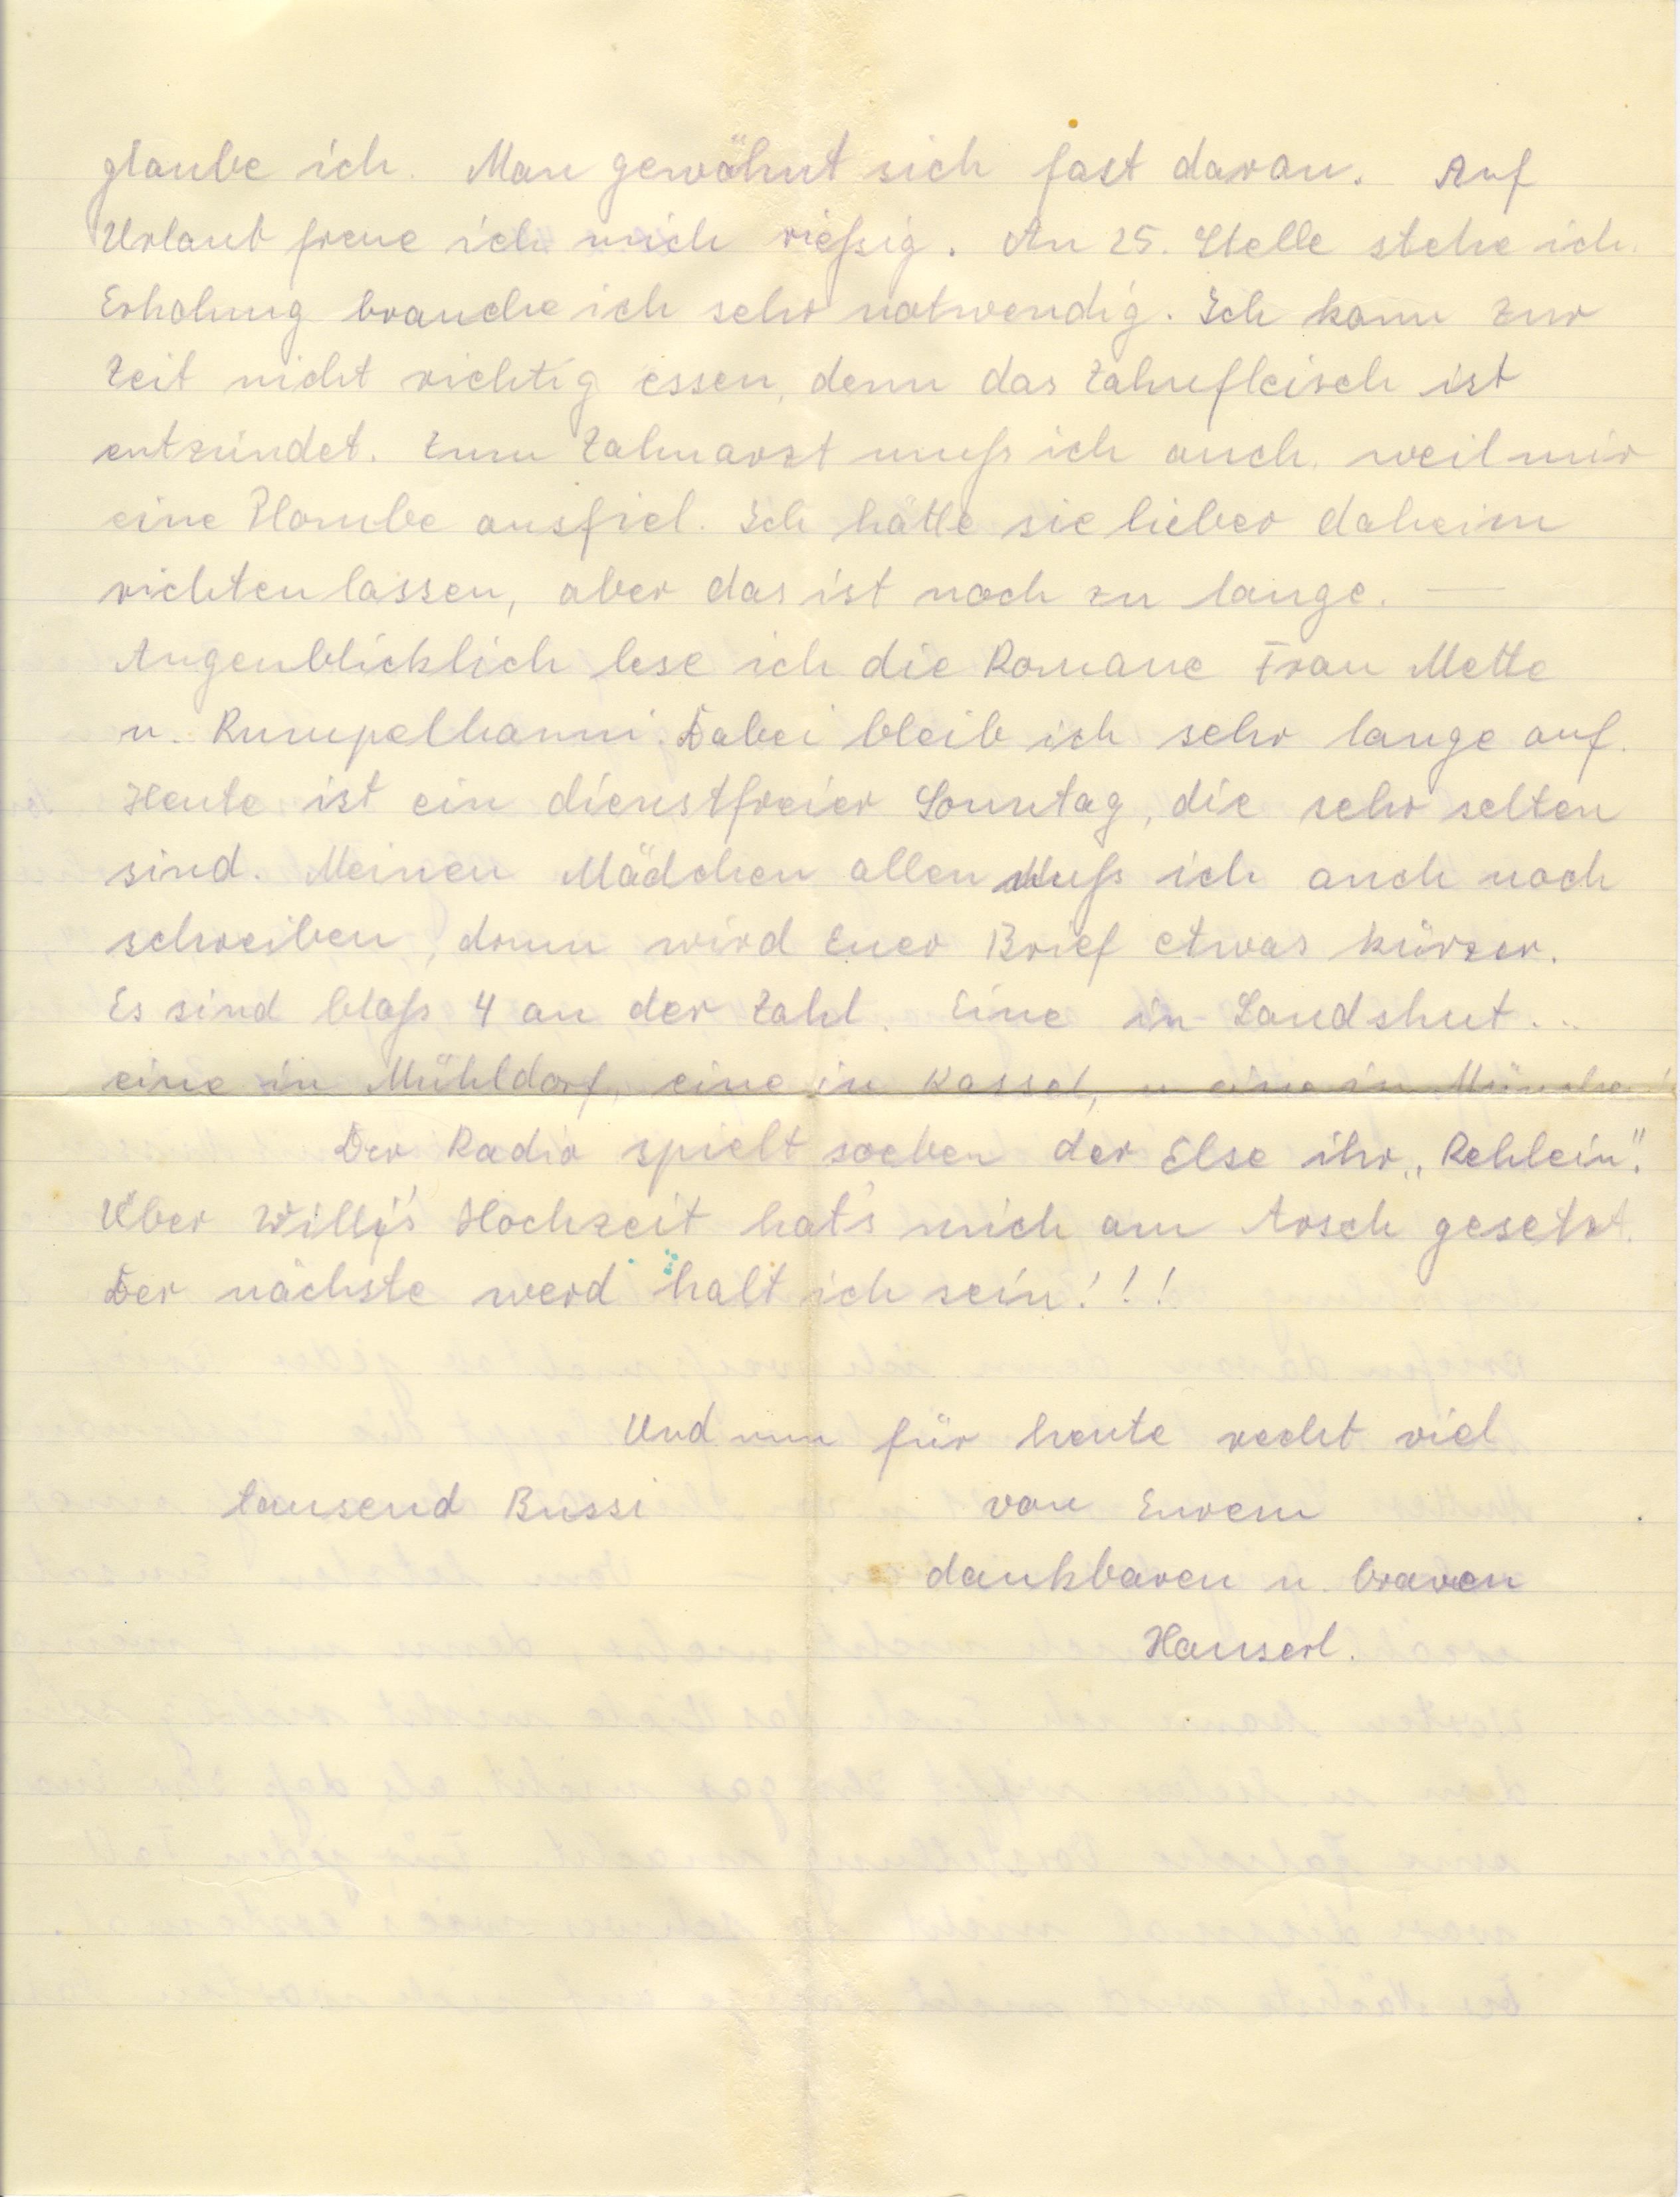 glaube ich. Man gewöhnt sich fast daran. Auf
Urlaub freue ich mich rießig. An 25. Stelle stehe ich.
Erholung brauche ich sehr notwendig. Ich kann zur
Zeit nicht richtig essen, denn das Zahnfleisch ist
entzündet. Zum Zahnarzt muß ich auch, weil mir
eine Plombe ausfiel. Ich hätte sie lieber daheim
richten lassen, aber das ist noch zu lange. —
Augenblicklich lese ich die Romane Frau Mette
u. Rumpelhanni. Dabei bleib ich sehr lange auf.
Heute ist ein dienstfreier Sonntag, die sehr selten
sind. Meinen Mädchen allen muß ich auch noch
schreiben, drum wird Euer Brief etwas kürzer.
Es sind bloß 4 an der Zahl. Eine in Landshut..
eine in Mühldorf, eine in Kassel, u eine in München!
Der Radio spielt soeben der Else ihr „Rehlein".
Über Willy's Hochzeit hat's mich am Arsch gesetzt.
Der nächste werd halt ich sein!!!
Und nun für heute recht viel
tausend Bussi von Eurem
dankbaren u. braven
Hanserl.